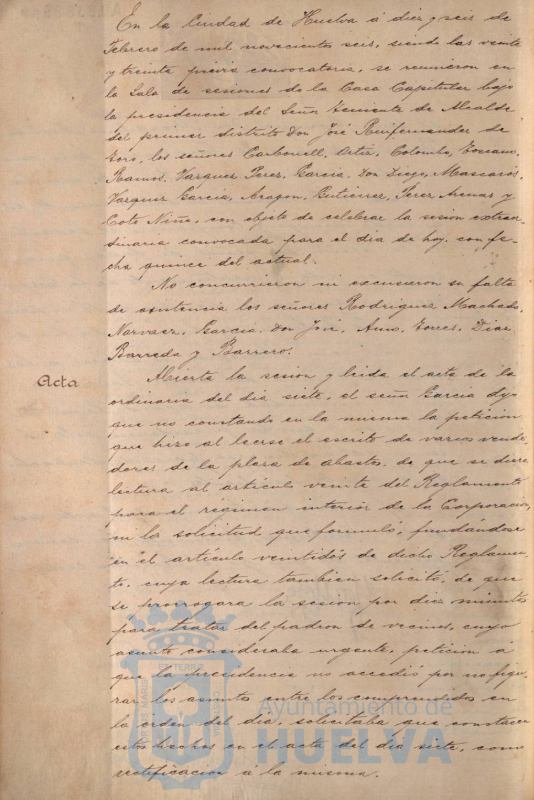 En la Ciudad de Huelva á diez y seis de
Febrero de mil novecientos seis, siendo las veinte
y treinta previa convocatoria, se reunieron en
la Sala de sesiones de la Casa Capitular bajo
la presidencia del Señor Teniente de Alcalde
del primer distrito Don José Reifernander de
Toro, los señores Carbonell, Ortiz, Colombo, Toscano,
Ramos, Vazquez Perez, Garcia, Don Diego, Mascarós,
Vazquez Garcia, Aragon, Gutierrez, Perez y
Coto Niño, con objeto de celebrar la sesión extraor-
dinaria convocada para el dia de hoy, con fe-
cha quince del actual.
No concurrieron ni excusaron su falta
de asistencia los señores Rodriguez Machado,
Narvaez, Garcia, Don José, Torres, Diaz,
Barreda y Barrero.
Acta
Abierta la sesion y leida el acta de la
ordinaria del dia siete, el señor Garcia dijo
que no constando en la misma la petición
que hizo al leerse el escrito de varios vende-
dores de la plaza de abastos, de que se diera
lectura al artículo veinte del Reglamento
para el regimen interior de la Corporacion,
ni la solicitud que formuló, fundándose
en el artículo veintidós de dicho Reglamen-
to, cuya lectura tambien solicitó, de que
se prorrogara la sesion por diez minutos
para tratar del padron de vecinos, cuyo
asunto consideraba urgente, petición á
que la presidencia no accedió por no figu-
rar los asuntos entre los comprendidos en
la orden del dia, solicitaba que constasen
estos hechos en el acta del dia siete, como
rectificacion á la misma.
Ayuntamiento de
HUELVA